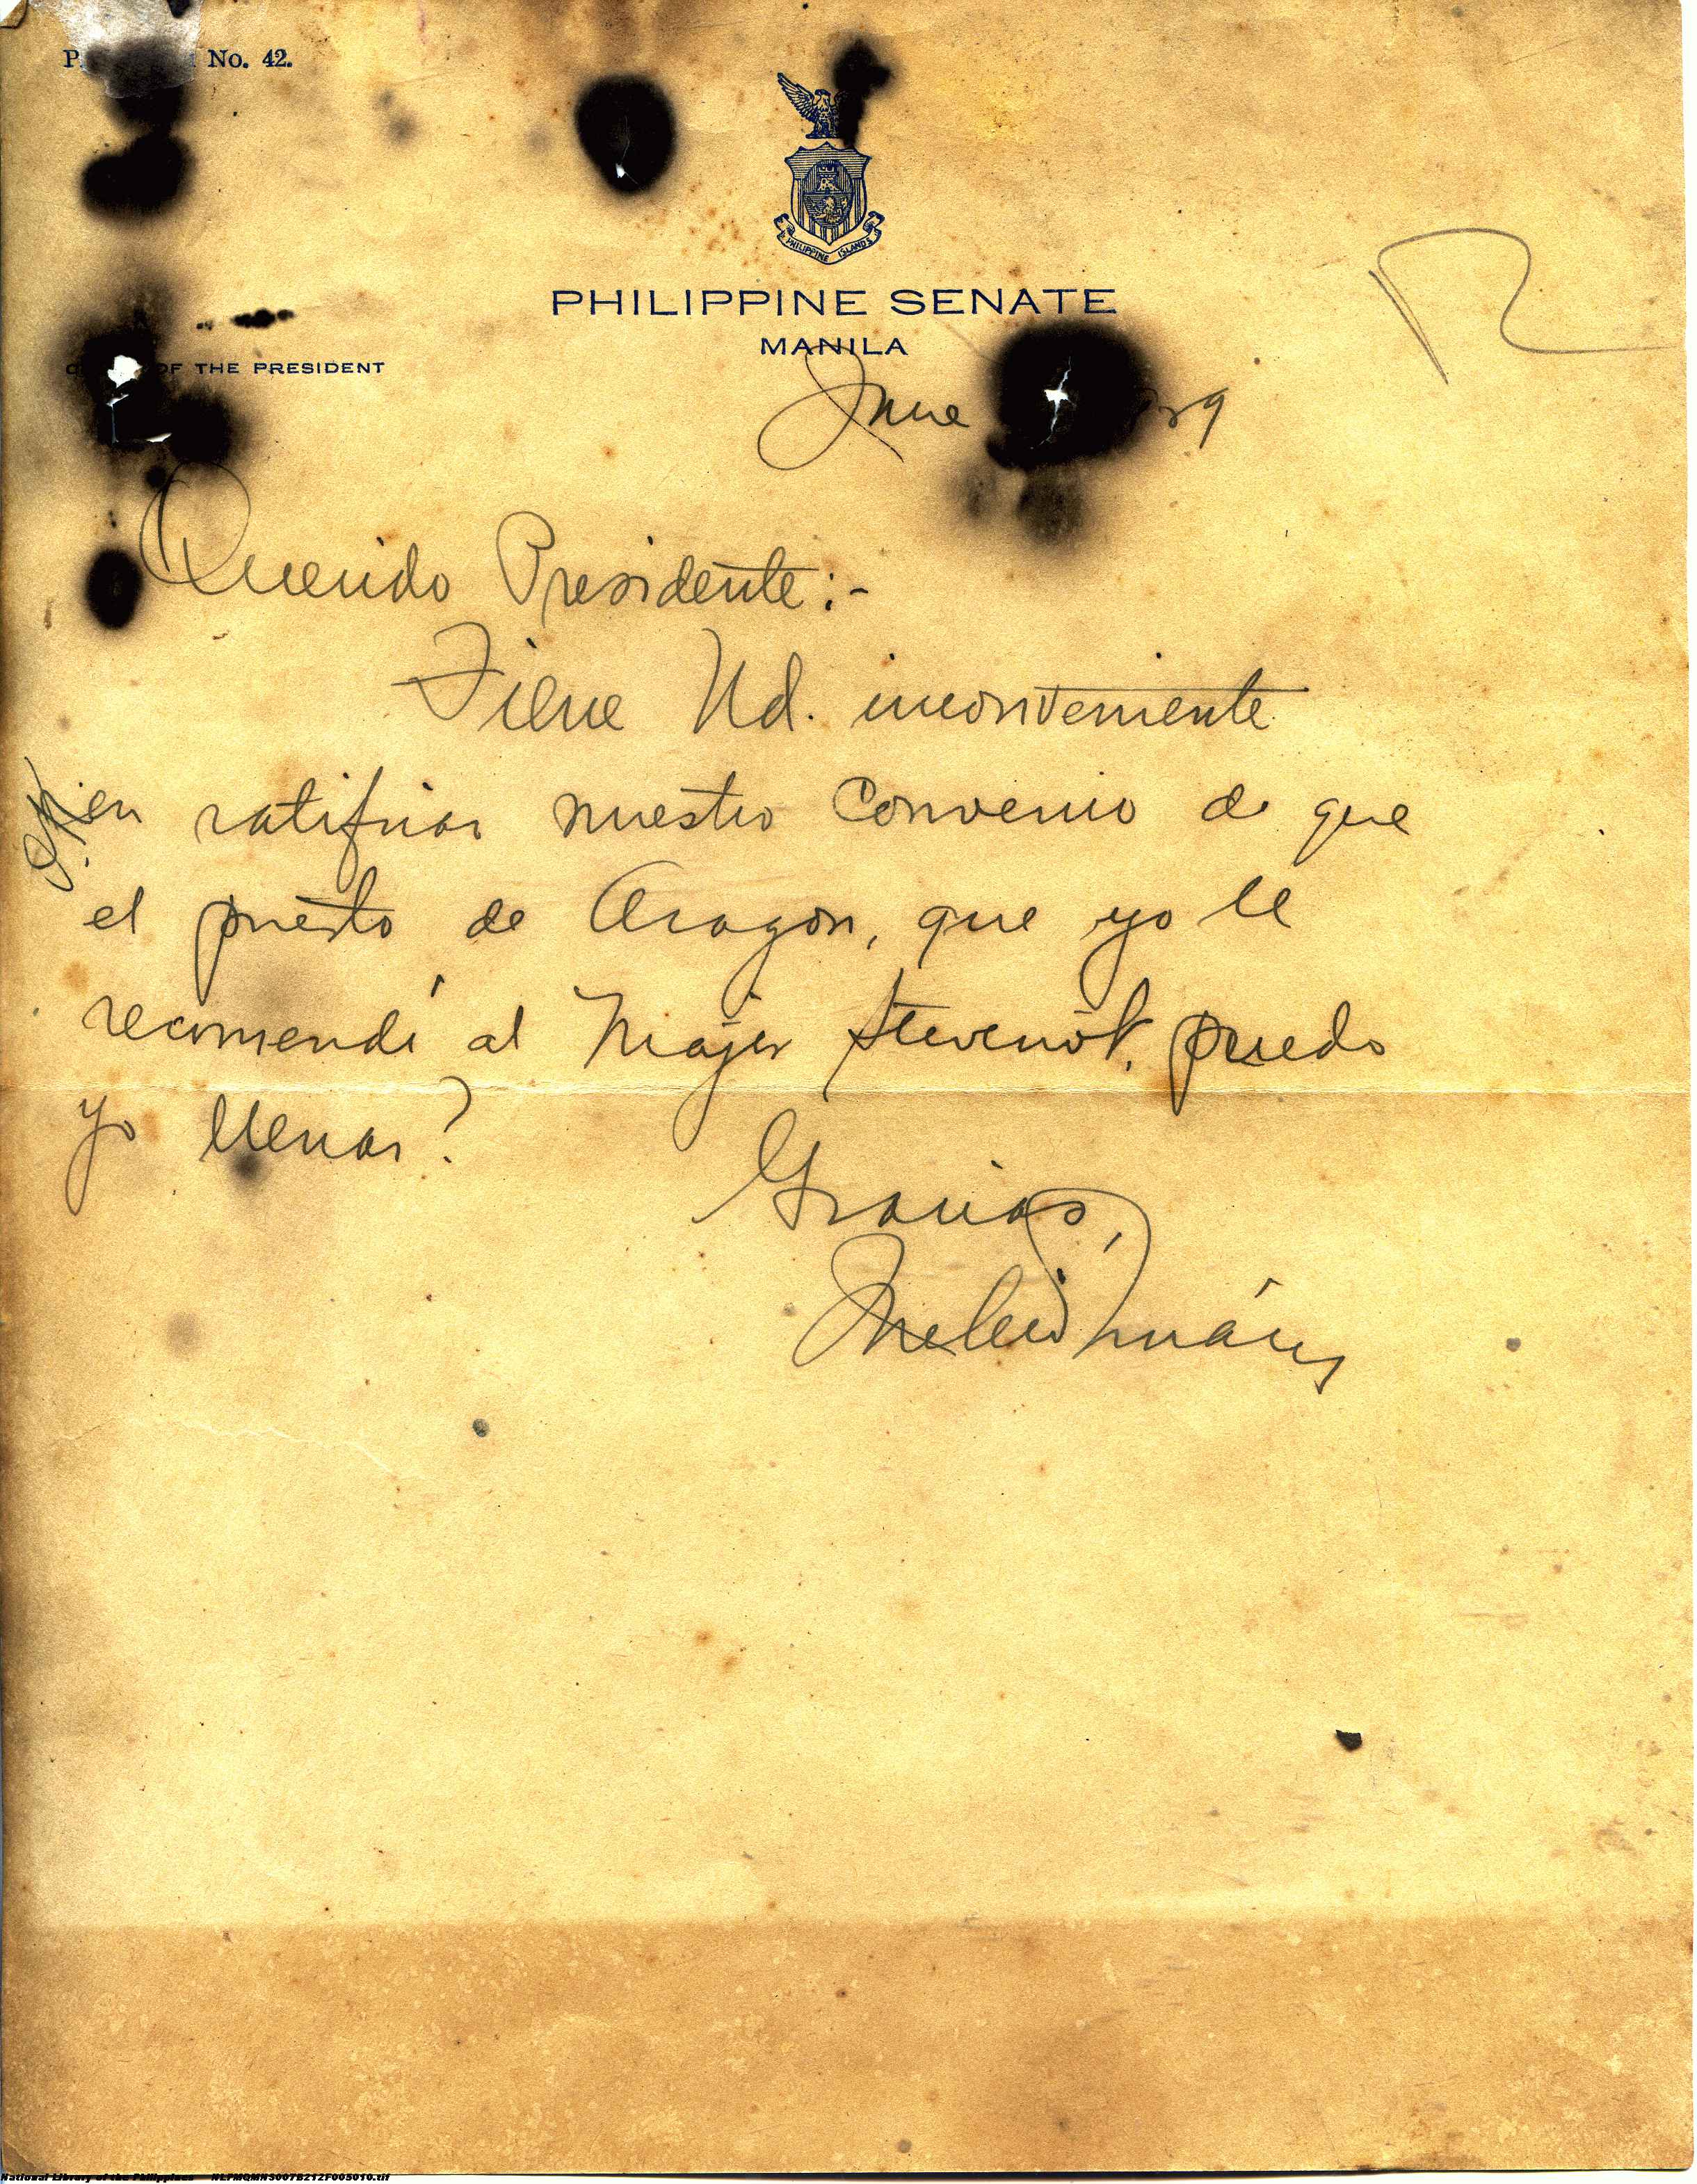 No. 42.
PHILIPPINE ISLANDS
PHILIPPINE SENATE
MANILA
OF THE PRESIDENT
June
Querido Presidente:-
Tiene Ud. inconveniente
en ratificar nuestro Convenio de que
el puesto de Aragon, que yo le
recomendé al Major Stevenot, puedo
yo llenar?
Gracias,
National Library of the Philippines NLPMQMNS007B212F005010.tif